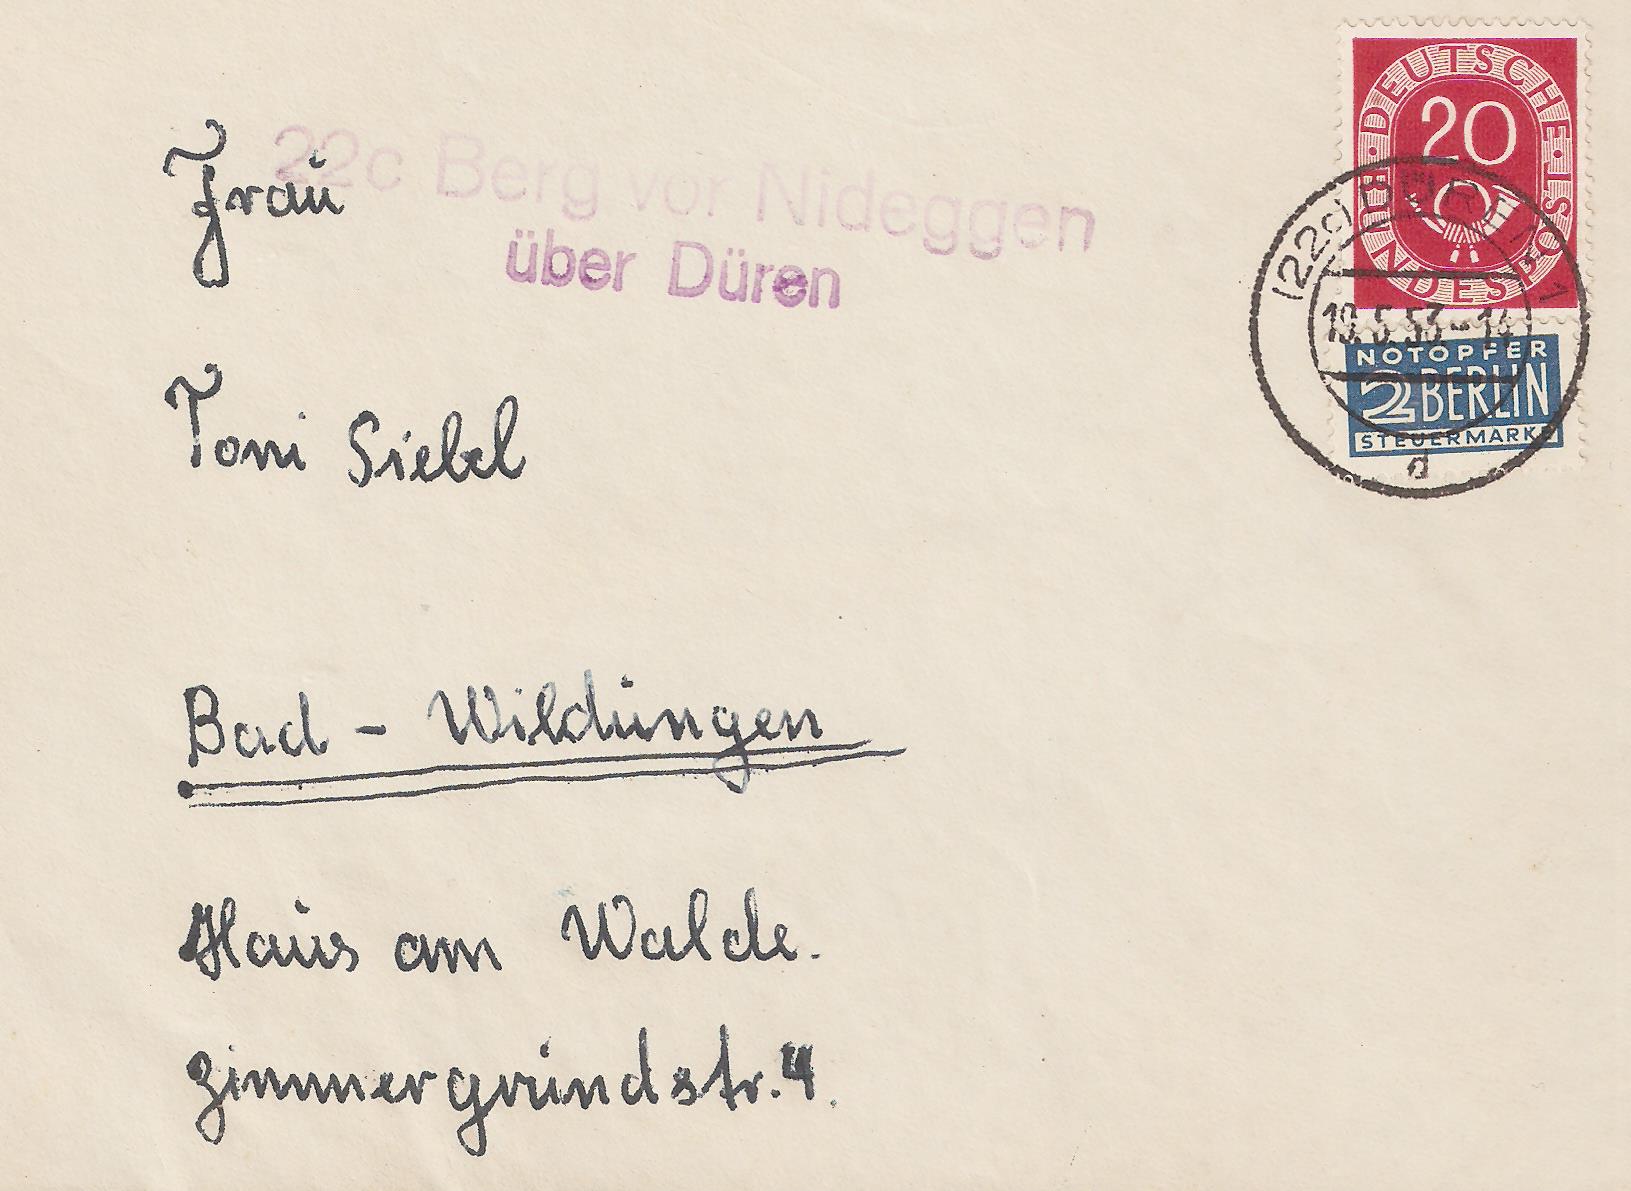 22c Berg vor Nideggen
über Düren
Frau
Toni Siebel
Bad - Wildungen
Haus am Walde.
Zimmergrundstr. 4.
DEUTSCHE BUNDESPOST
20
(22c) DÜREN
1
19.5.53-14
d
NOTOPFER
2 BERLIN
STEUERMARKE